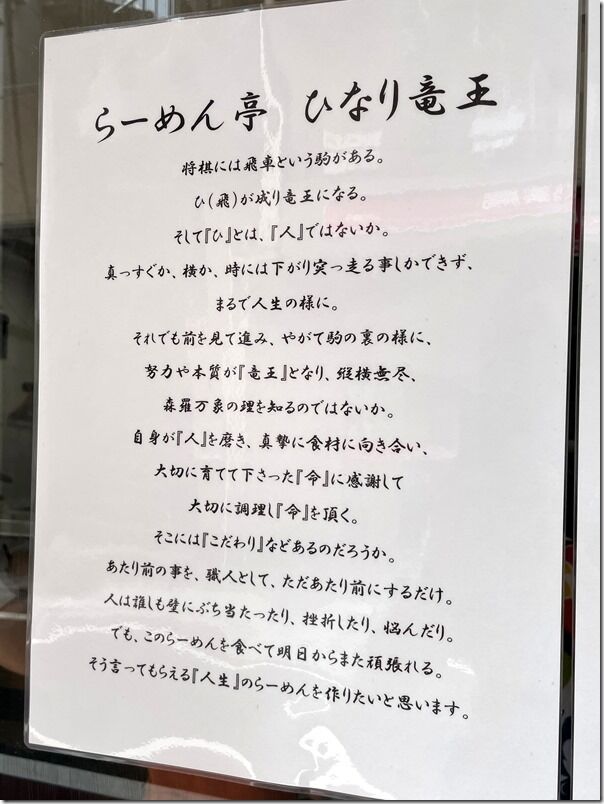 らーめん亭 ひなり竜王
将棋には飛車という駒がある。
ひ(飛)が成り竜王になる。
そして『ひ』とは、『人』ではないか。
真っすぐか、横か、時には下がり突っ走る事しかできず、
まるで人生の様に。
それでも前を見て進み、やがて駒の裏の様に、
努力や本質が『竜王』となり、縦横無尽、
森羅万象の理を知るのではないか。
自身が『人』を磨き、真摯に食材に向き合い、
大切に育てて下さった『命』に感謝して
大切に調理し『命』を頂く。
そこには『こだわり』などあるのだろうか。
あたり前の事を、職人として、ただあたり前にするだけ。
人は誰しも壁にぶち当たったり、挫折したり、悩んだり。
でも、このらーめんを食べて明日からまた頑張れる。
そう言ってもらえる『人生』のらーめんを作りたいと思います。